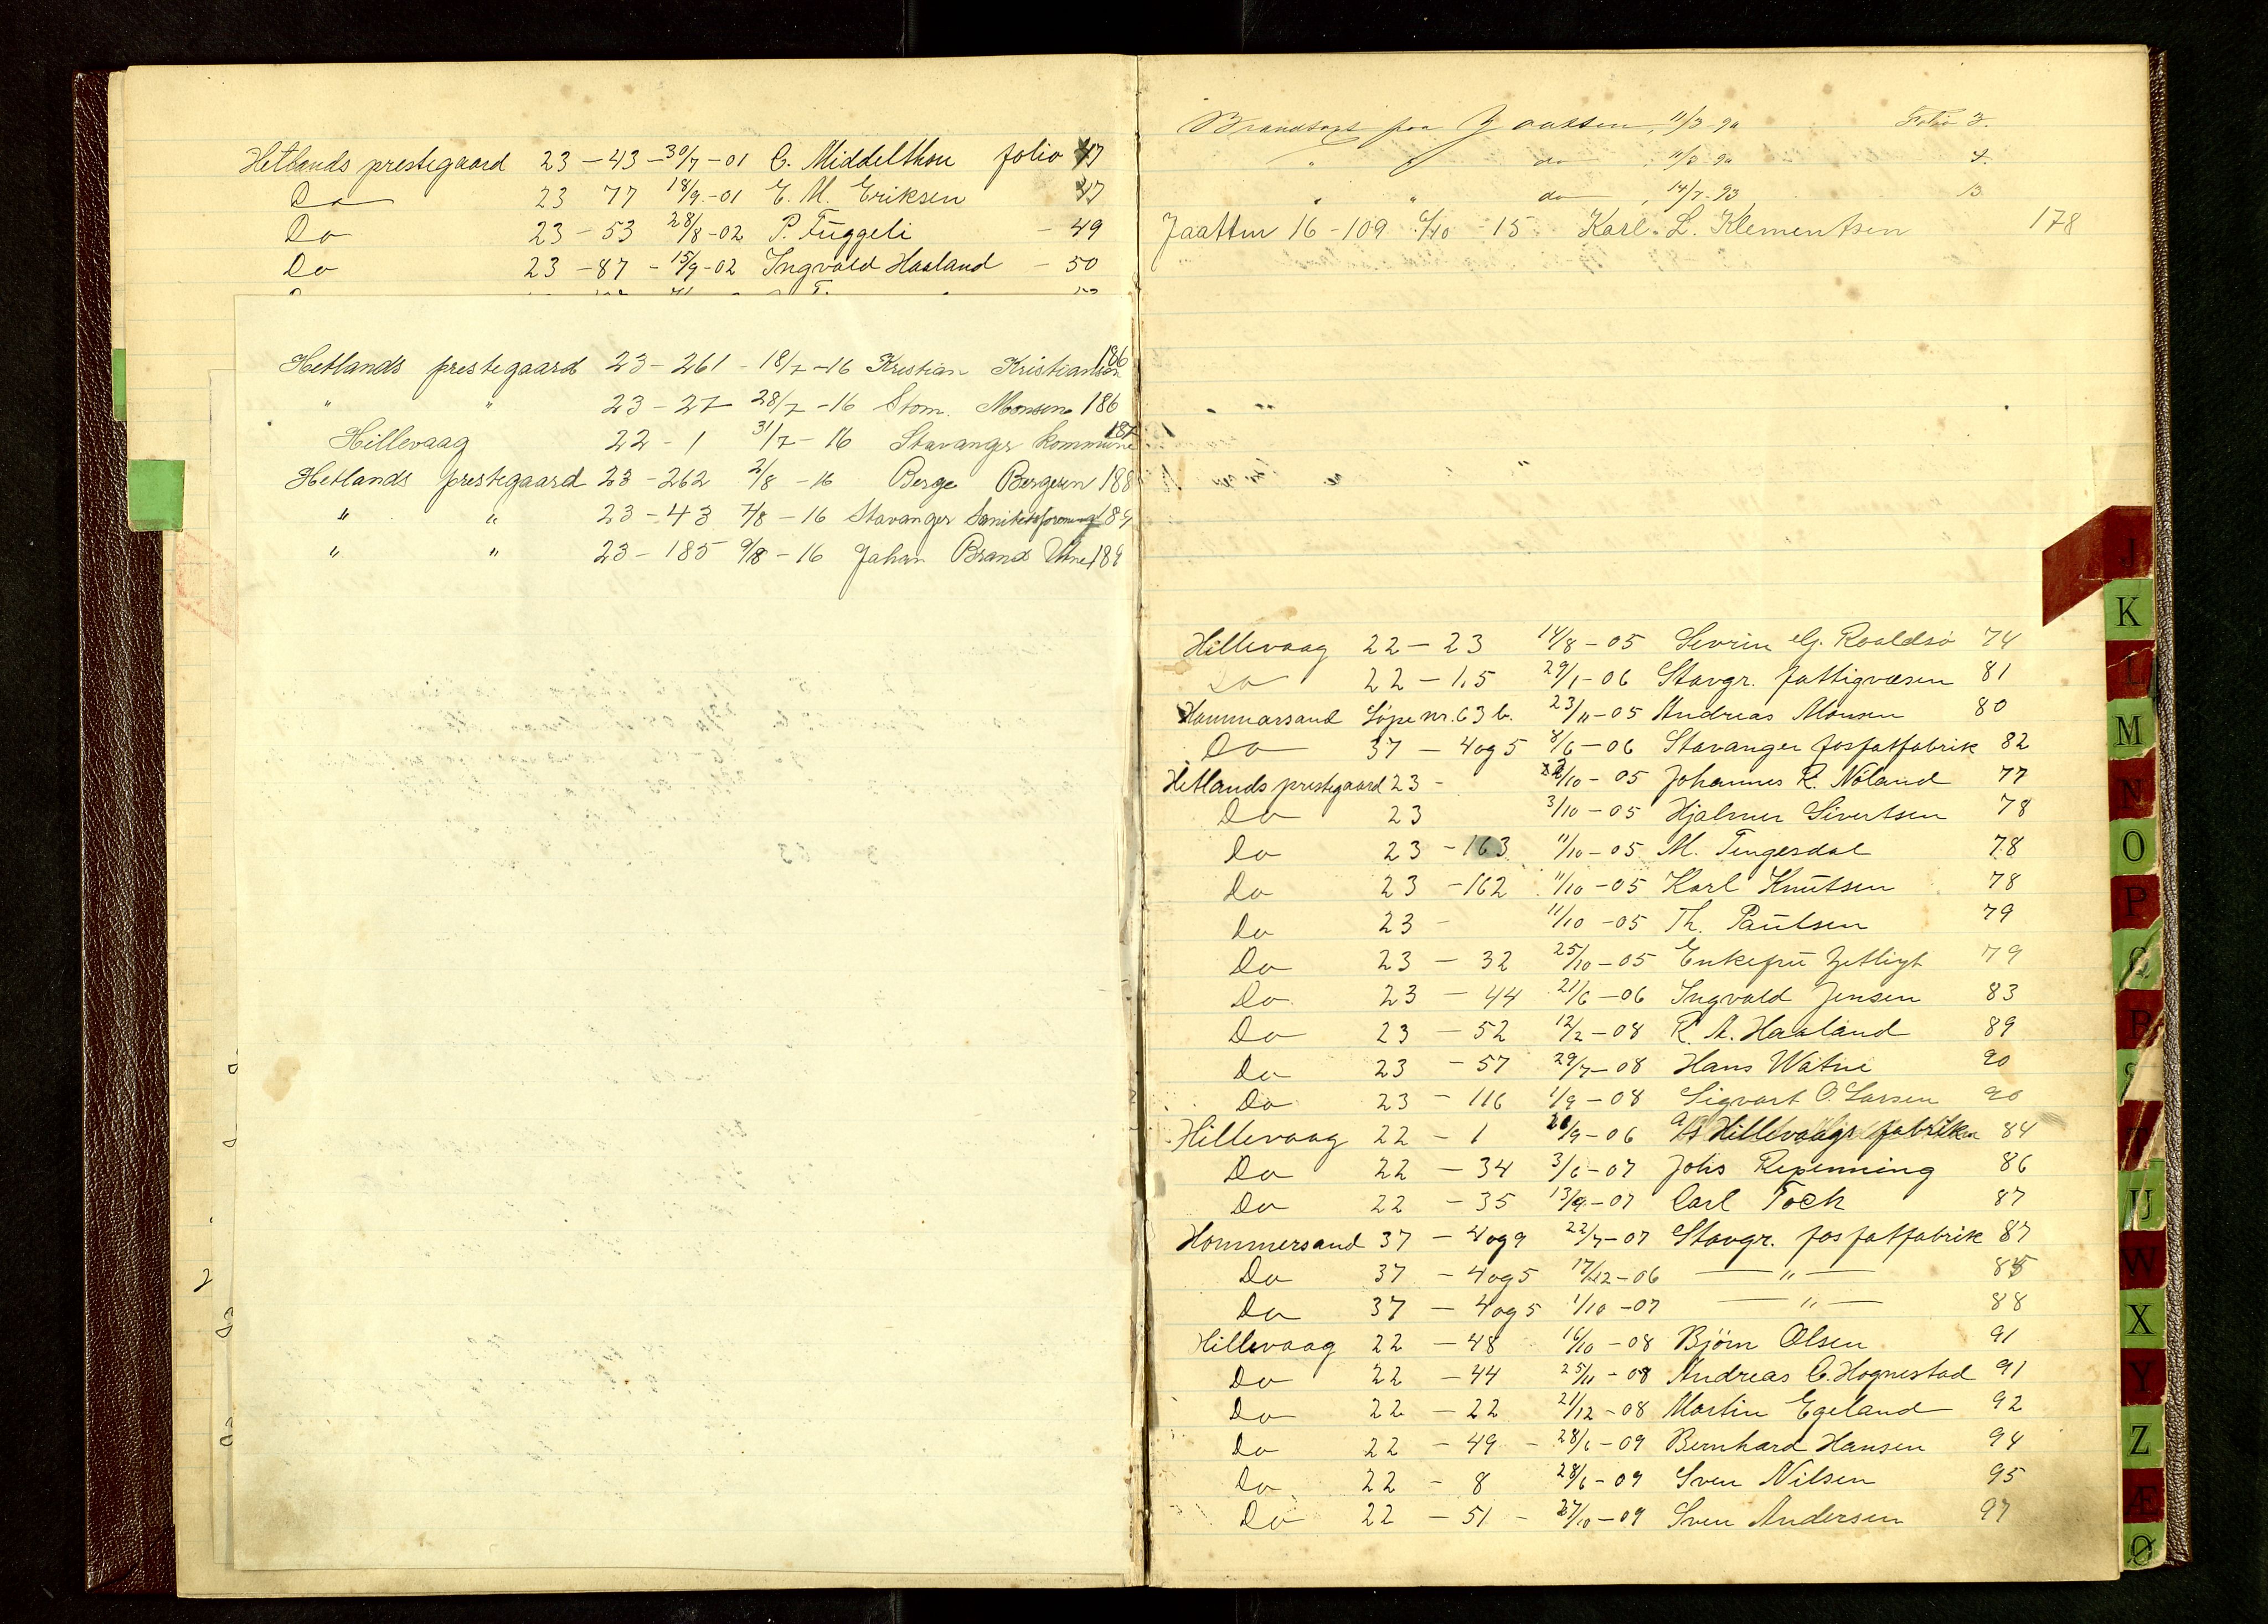 Hetlands prestegaard 23 - 43 - 30/7 - 01 C. Middelthon folio 47
Do 23 77 18/9 - 01 E. M. Eriksen 47
Do 23 - 53 28/8 - 02 P. Fuggeli - 49
Do 23 - 87 - 15/9 - 02 Ingvald Haaland - 50
Hetlands prestegaard 23 - 261 - 18/7 - 16 Kristian Kristiansen 186
" " 23 - 27 28/7 - 16 Monsen 186
Hillevaag 22 - 1 31/7 - 16 Stavanger kommune 187
Hetlands prestegaard 23 - 262 2/8 - 16 Berge Bergesen 188
" " 23 - 43 7/8 - 16 Stavanger Sanitetsforening 189
" " 23 - 185 9/8 - 16 Johan Brand 189
Brandtaxt paa Jaatten, 11/3 - 90 Folio 3.
" " do, 11/3 - 90
" " do, 14/7 - 93 13
Jaatten 16 - 109 6/10 - 15 Karl L. Klementsen 178
Hillevaag 22 - 23 14/8 - 05 Sevrin G. Roaldsø 74
Do 22 - 1.5 29/1 - 06 Stavgr. fattigvæsen 81
Hammarsand Løpe nr. 63 b. 23/11 - 05 Andreas Monsen 80
Do 37 - 4 og 5 8/6 - 06 Stavanger fosfatfabrik 82
Hetlands prestegaard 23 - /10 - 05 Johannes R. Nöland 77
Do 23 3/10 - 05 Hjalmer Sivertsen 78
Do 23 - 163 11/10 - 05 M. Tengesdal 78
Do 23 - 162 11/10 - 05 Karl Knutsen 78
Do 23 - 11/10 - 05 Th. Paulsen 79
Do 23 - 32 25/10 - 05 Enkefru Zetligt 79
Do 23 - 44 21/6 - 06 Ingvald Jensen 83
Do 23 - 52 12/2 - 08 R. A. Haaland 89
Do 23 - 57 29/7 - 08 Hans Watne 90
Do 23 - 116 1/9 - 08 Sigvart O. Larsen 90
Hillevaag 22 - 1 26/9 - 06 A/s Hillevaags fabriker 84
Do 22 - 34 3/6 - 07 Johs Repenning 86
Do 22 - 35 13/9 - 07 Carl Tock 87
Hommersand 37 - 4 og 9 22/7 - 07 Stavgr. fosfatfabrik 87
Do 37 - 4 og 5 17/12 - 06 — " — 85
Do 37 - 4 og 5 1/10 - 07 — " — 88
Hillevaag 22 - 48 16/10 - 08 Bjørn Olsen 91
Do 22 - 44 25/11 - 08 Andreas C. Hognestad 91
Do 22 - 22 21/12 - 08 Martin Egeland 92
Do 22 - 49 - 28/6 - 09 Bernhard Hansen 94
Do 22 - 8 28/6 - 09 Sven Nilsen 95
Do 22 - 51 - 27/10 - 09 Sven Andersen 97
J
K
L
M
N
O
P
Q
R
S
T
U
W
X
Y
Z
Æ
Ø